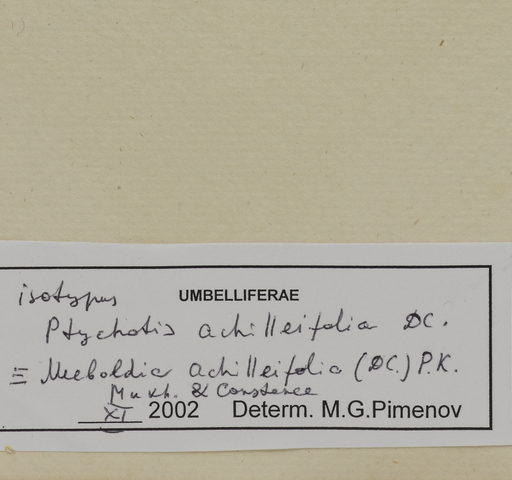 isotypus UMBELLIFERAE
Ptychotis achilleifolia DC.
≡ Meeboldia achilleifolia (DC.) P.K.
Mukh. & Constance
XI 2002 Determ. M.G.Pimenov